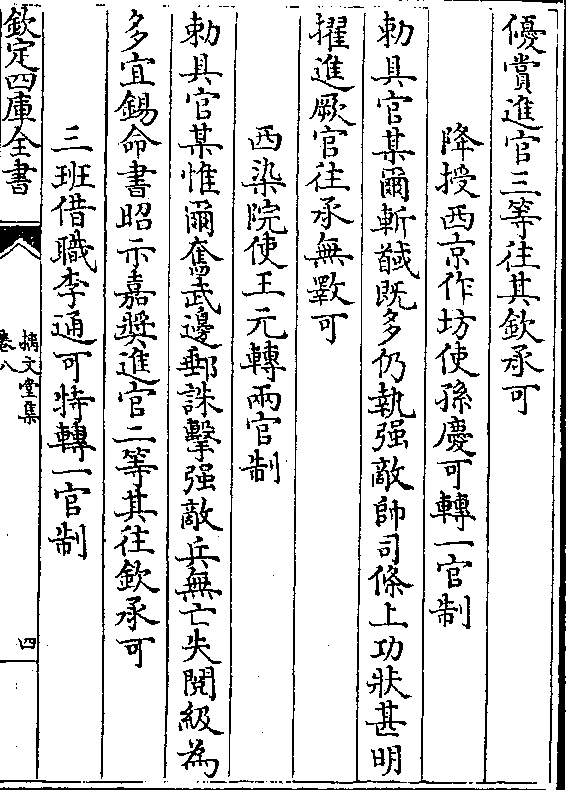 優賞進官三等往其欽承可
降授西京作坊使孫慶可轉一官制
勅具官某爾斬馘既多仍執强敵帥司條上功狀甚明
擢進厥官往承無斁可
西染院使王元轉兩官制
勅具官某惟爾奮武邊郵誅擊强敵兵無亡失閱級為
多宜錫命書昭示嘉奬進官二等其往欽承可
三班借職李通可特轉一官制
欽定四庫全書
摛文堂集
卷八
四